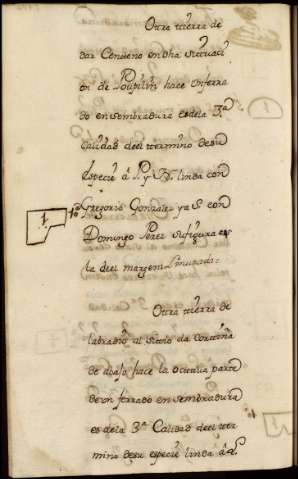 Otra tierra de
dar Centeno en dha situaci
on de hace un ferra
do en sembradura es de la 3.ª
calidad de el termino de su
especie â P. y N. linda con
Gregorio Gonzalez y a S. con
Domingo Perez su figura es
la de el margen
1
Otra tierra de
labradio al sitio da cortiña
de hace la octava parte
de un ferrado en sembradura
es de la 3ª Calidad de el ter
mino de su especie linda â